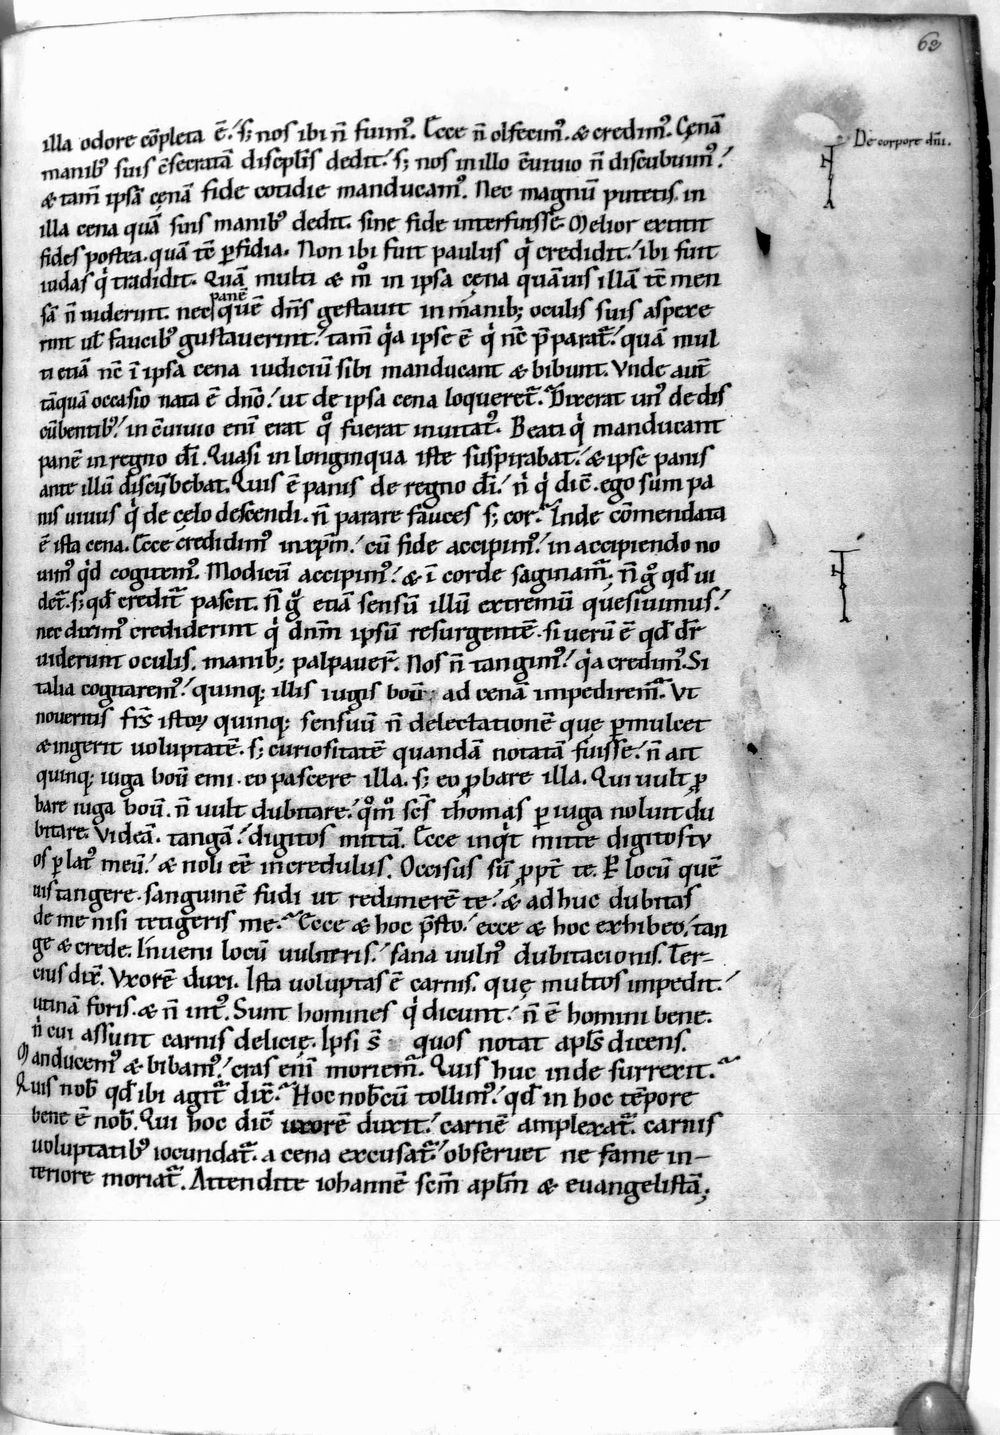 62
De corpore dñi.
illa odore cõpleta ẽ. s; nos ibi ñ fuimꝰ. Ecce ñ olfecimꝰ. & credimꝰ. Cęnã
manibꝰ suis c̃secratã discipl̃is dedit. s; nos in illo c̃uiuio ñ discubuimꝰ.
& tam̃ ipsã cęnã fide cotidie manducamꝰ. Nec magnũ putetis. in
illa cena quã suis manibꝰ dedit. sine fide interfuisse. Melior extitit
fides postea. quã tc̃ ꝑfidia. Non ibi fuit paulus q̇ credidit. ibi fuit
iudas q̇ tradidit. Quã multi & m̊ in ipsa cęna quãuis illã tc̃ men
sã ñ uiderunt. nec quẽ dñs gestauit in manib; oculis suis aspexe
panẽ
runt ul̃ faucibꝰ gustauerint. tam̃ q̇a ipse ẽ q̇ nc̃ p̃parat̃. quã mul
ti etiã nc̃ ĩ ipsa cena iudiciũ sibi manducant & bibunt. Vnde aut̃
tãquã occasio nata ẽ dñо. ut de ipsa cena loqueret̃. Dixerat unꝰ de dis
cũbentibꝰ. in c̃uiuio eni͂ erat q̊ fuerat inuitatꝰ. Beati q̇ manducant
panẽ in regno dĩ. Quasi in longinqua iste suspirabat. & ipse panis
ante illũ discũbebat. Quis ẽ panis de regno dĩ. ñ q̇ dic̃. ego sum pa
nis uiuus q̇ de cęlo descendi. ñ parare fauces s; cor. Inde cõmendata
ẽ ista cena. Ecce credidimꝰ in xp̃m. cũ fide accipimꝰ. in accipiendo no
uimꝰ q̇d cogitemꝰ. Modicũ accipimꝰ. & ĩ corde saginam̃. ñ g̊ qd̃ ui
det̃. s; qd̃ credit̃ pascit. ñ g̊ etiã sensũ illũ extremũ quesiuimus.
nec diximꝰ crediderint q̇ dnm̃ ipsũ resurgentẽ. si uerũ ẽ qd̃ dr̃
uiderunt oculis. manib; palpauer̃. Nos ñ tangimꝰ. q̇a credimꝰ. Si
talia cogitaremꝰ. quinq; illis iugis boũ ad cenã impedirem̃. Vt
noueritis fr̃s istoꝝ quinq; sensuũ ñ delectationẽ quę ꝑmulcet
& ingerit uoluptatẽ. s; curiositatẽ quandã notatã fuisse. ñ ait
quinq; iuga boũ emi. eo pascere illa. s; eo ꝓbare illa. Qui uult ꝓ
bare iuga boũ. ñ uult dubitare. q̊m̊ scs̃ thomas ꝑ iuga noluit du
bitare. Videã. tangã. digitos mittã. Ecce inq̇t mitte digitos tu
os ꝑ latꝰ meũ. & noli eẽ incredulus. Occisus sũ ꝓpt̃ te. ꝑ locũ quẽ
uis tangere. sanguinẽ fudi ut redimerẽ te. & adhuc dubitas
de me nisi tetigeris me. Ecce & hoc p̃sto. ecce & hoc exhibeo. tan
ge & crede. Inueni locũ uulneris. sana uulnꝰ dubitacionis. Ter-
cius dix̃. Vxorẽ duxi. Ista uoluptas ẽ carnis. quę multos impedit.
utinã foris. & ñ intꝰ. Sunt homines q̇ dicunt. ñ ẽ homini bene.
n̍ cui assunt carnis delicię. Ipsi s̃ quos notat apl̃s dicens.
Manducemꝰ & bibamꝰ. cras eni͂ moriem̃. Quis huc inde surrexit.
Quis nob̃ qd̃ ibi agit̃ dix̃. Hoc nob̃cũ tollimꝰ. qd̃ in hoc tẽpore
bene ẽ nob̃. Qui hoc dic̃ uxorẽ duxit. carnẽ amplexat̃. carnis
uoluptatibꝰ iocundat̃. a cena excusat̃. obseruet ne fame in-
teriore moriat̃. Attendite iohannẽ scm̃ apl̃m & euangelistã;